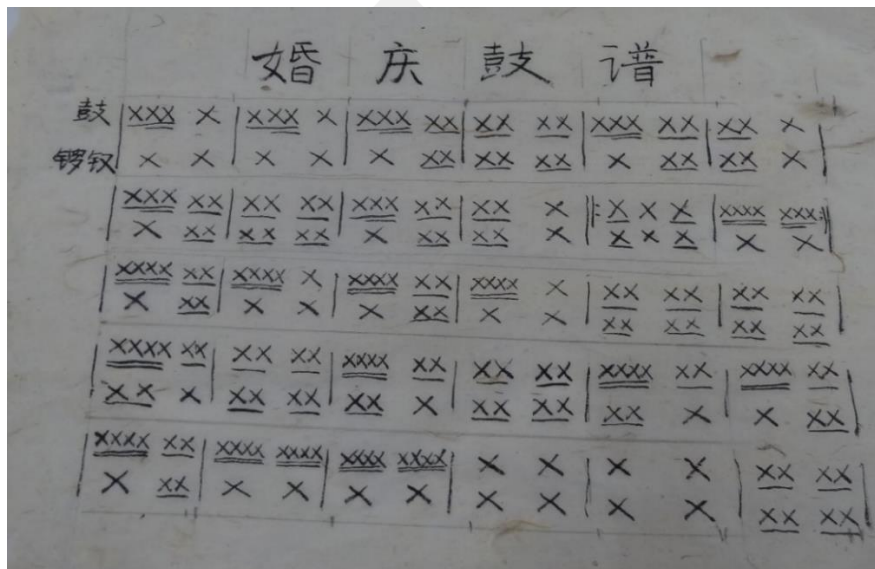 婚庆鼓谱
鼓 | XXX X | XXX X | XXX XX | XX XX | XXX XX | XX X |
锣钗 X X | X X | X XX | XX XX | X XX | XX X |
| XXX XX | XX XX | XXX XX | XX X |: X X X | XXXX XXX :|
X XX | XX XX | X XX | XX X | X X X | X X
| XXXX XX | XXXX X | XXXX XX | XXXX X | XX XX | XX XX |
X XX | X X | X XX | X X | XX XX | XX XX
| XXXX XX | XX XX | XXXX XX | XX XX | XXXX XX | XXXX XX |
XX X | XX XX | XX X | XX XX | XX X | X XX
| XXXX XX | XXXX XXXX | XXXX XXXX | X X | X X | XX XX |
X XX | X X | X X | X X | X X | XX XX